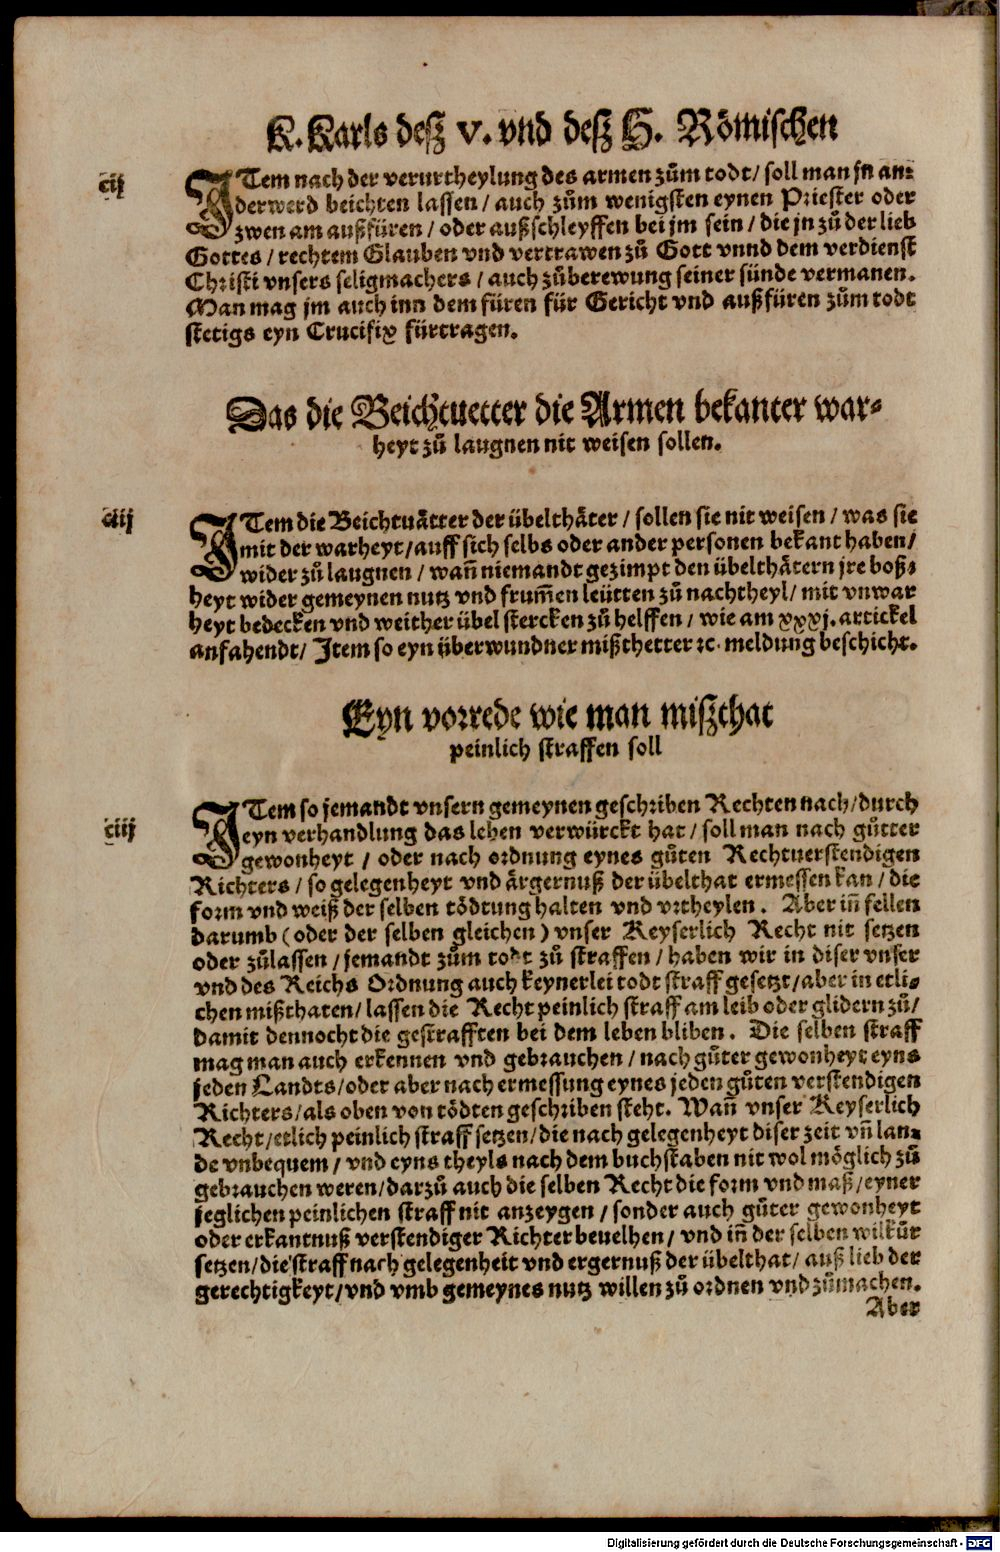 K. Karls deß V. vnd deß H. Römischen
cij
ITem nach der verurtheylung des armen zům todt / soll man jn an⸗
derwerd beichten lassen / auch zům wenigsten eynen Priester oder
zwen am außfüren / oder außschleyffen bei jm sein / die jn zů der lieb
Gottes / rechtem Glauben vnd vertrawen zů Gott vnnd dem verdienst
Christi vnsers seligmachers / auch zůberewung seiner sünde vermanen.
Man mag jm auch inn dem füren für Gericht vnd außfüren zům todt
stetigs eyn Crucifix fürtragen.
Das die Beichtuetter die Armen bekanter war⸗
heyt zů laugnen nit weisen sollen.
ciij
ITem die Beichtuätter der übelthäter / sollen sie nit weisen / was sie
mit der warheyt / auff sich selbs oder ander personen bekant haben /
wider zů laugnen / wañ niemandt gezimpt den übelthätern jre boß⸗
heyt wider gemeynen nutz vnd frum̃en leütten zů nachtheyl / mit vnwar
heyt bedecken vnd weither übel stercken zů helffen / wie am xxxj. artickel
anfahendt / Item so eyn überwundner mißthetter ꝛc. meldung beschicht.
Eyn vorrede wie man mißthat
peinlich straffen soll
ciiij
ITem so jemandt vnsern gemeynen geschriben Rechten nach / durch
eyn verhandlung das leben verwürckt hat / soll man nach gůtter
gewonheyt / oder nach ordnung eynes gůten Rechtuerstendigen
Richters / so gelegenheyt vnd ärgernuß der übelthat ermessen kan / die
form vnd weiß der selben tödtung halten vnd vrtheylen. Aber iñ fellen
darumb (oder der selben gleichen) vnser Keyserlich Recht nit setzen
oder zůlassen / jemandt zům todt zů straffen / haben wir in diser vnser
vnd des Reichs Ordnung auch keynerlei todt straff gesetzt / aber in etli⸗
chen mißthaten / lassen die Recht peinlich straff am leib oder glidern zů /
damit dennocht die gestrafften bei dem leben bliben. Die selben straff
mag man auch erkennen vnd gebrauchen / nach gůter gewonheyt eyns
jeden Landts / oder aber nach ermessung eynes jeden gůten verstendigen
Richters / als oben von tödten geschriben steht. Wañ vnser Keyserlich
Recht / etlich peinlich straff setzen / die nach gelegenheyt diser zeit vñ lan⸗
de vnbequem / vnd eyns theyls nach dem buchstaben nit wol möglich zů
gebrauchen weren / darzů auch die selben Recht die form vnd maß / eyner
jeglichen peinlichen straff nit anzeygen / sonder auch gůter gewonheyt
oder erkantnuß verstendiger Richter beuelhen / vnd iñ der selben wilkür
setzen / die straff nach gelegenheit vnd ergernuß der übelthat / auß lieb der
gerechtigkeyt / vnd vmb gemeynes nutz willen zů ordnen vnd zůmachen.
Aber
Digitalisierung gefördert durch die Deutsche Forschungsgemeinschaft - DFG